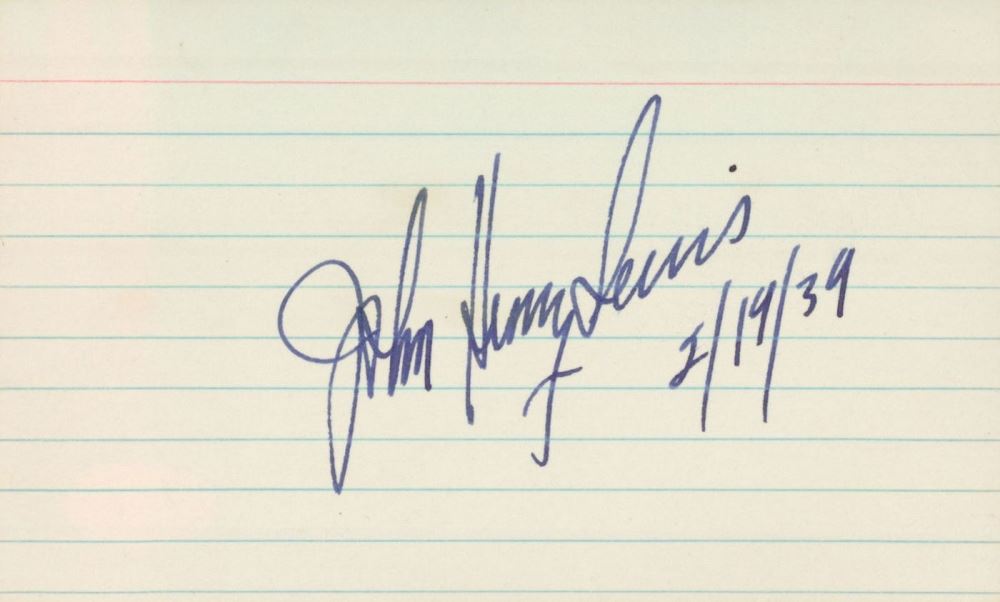 John Henry Lewis
2/19/39